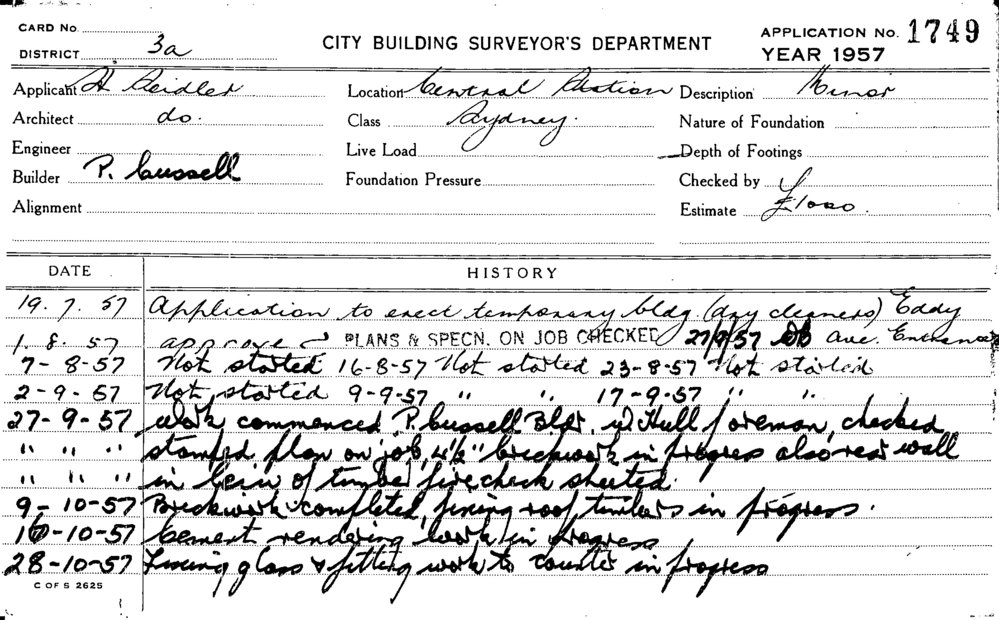 CARD No.
DISTRICT 3a
CITY BUILDING SURVEYOR'S DEPARTMENT
APPLICATION No. 1749
YEAR 1957
Applicant H Seidler Location Central Station Description Minor
Architect do. Class Sydney. Nature of Foundation
Engineer Live Load Depth of Footings
Builder P. Cussell Foundation Pressure Checked by
Alignment Estimate £1000.
DATE HISTORY
19. 7. 57 Application to erect temporary bldg (dry cleaners) Eddy
1. 8. 57 approve PLANS & SPECN. ON JOB CHECKED 27/9/57 Ave. Entrance
7-8-57 Not started 16-8-57 Not started 23-8-57 Not started
2-9-57 Not started 9-9-57 " " 17-9-57 " "
27-9-57 work commenced P. Cussell Bldr. Hull foreman, checked
" " " stamped plan on job, 4½" brickwork in progress also rear wall
" " " in of timber fire check sheeted.
9-10-57 Brickwork completed, fixing roof timbers in progress.
10-57 Cement rendering work in progress
28-10-57 Fixing glass & fitting work to counter in progress
C OF S 2625